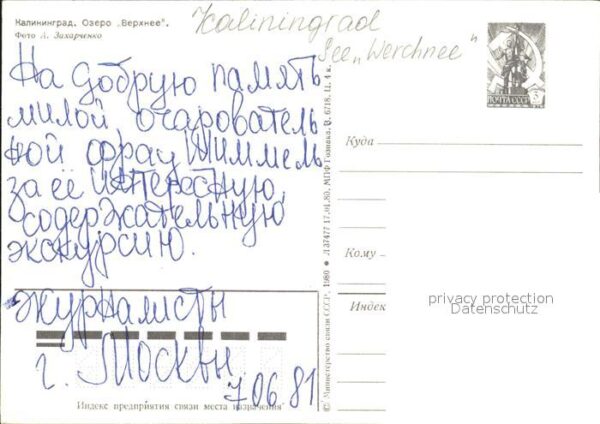 Калининград. Озеро „Верхнее".
Фото А. Захарченко
Kaliningrad
See „Werchnee"
ПОЧТА СССР 3
На добрую память
милой очарователь
ной фрау Шиммель
за её интересную,
содержательную
экскурсию.
журналисты
г. Москвы.
7.06.81
Индекс предприятия связи места назначения
© Министерство связи СССР, 1980 • Л 37477 17.01.80. МПФ Гознака. З. 6718. Ц. 4 к.
Куда
Кому
Индекс
privacy protection
Datenschutz